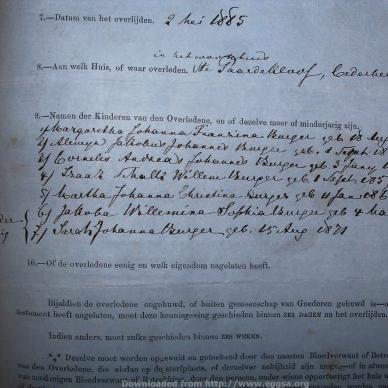 7.—Datum van het overlijden. 2 Mei 1885
in het woonhuis
8.—Aan welk Huis, of waar overleden. Te Paardekloof, Cederber
9.—Namen der Kinderen van den Overledene, en of dezelve meer of minderjarig zijn,
1) Margaretha Johanna Francina Burger geb 18 Aug
2) Alewyn Jakobus Johannes Burger geb. Sept 18
3) Cornelis Andreas Johannes Burger geb 3 Juny 1
4) Izaak Schalk Willem Burger geb 8 Sept 185
5) Martha Johanna Christina Burger geb 4 Jan 186
6) Jakoba Willemina Sophia Burger geb 4 Ma
7) Sarah Johanna Burger geb. 15 Aug 1871
10.—Of de overledene eenig en welk eigendom nagelaten heeft.
Bijaldien de overledene ongehuwd, of buiten gemeenschap van Goederen gehuwd is—o
testament heeft nagelaten, moet deze kennisgeving geschieden binnen ZES DAGEN na het overlijden.
Indien anders, moet zulks geschieden binnen ZES WEKEN.
*** Dezelve moet worden opgevuld en geteekend door den naasten Bloedverwant of Betr
van den Overledene, die alsdan op de sterfplaats, of derzelver nabijheid zijn moge,—of in afwe
van zoodanigen Bloedverwant of Betrekking, door den persoon, onder wiens oppertoezigt het huis
Downloaded from http://www.eggsa.org